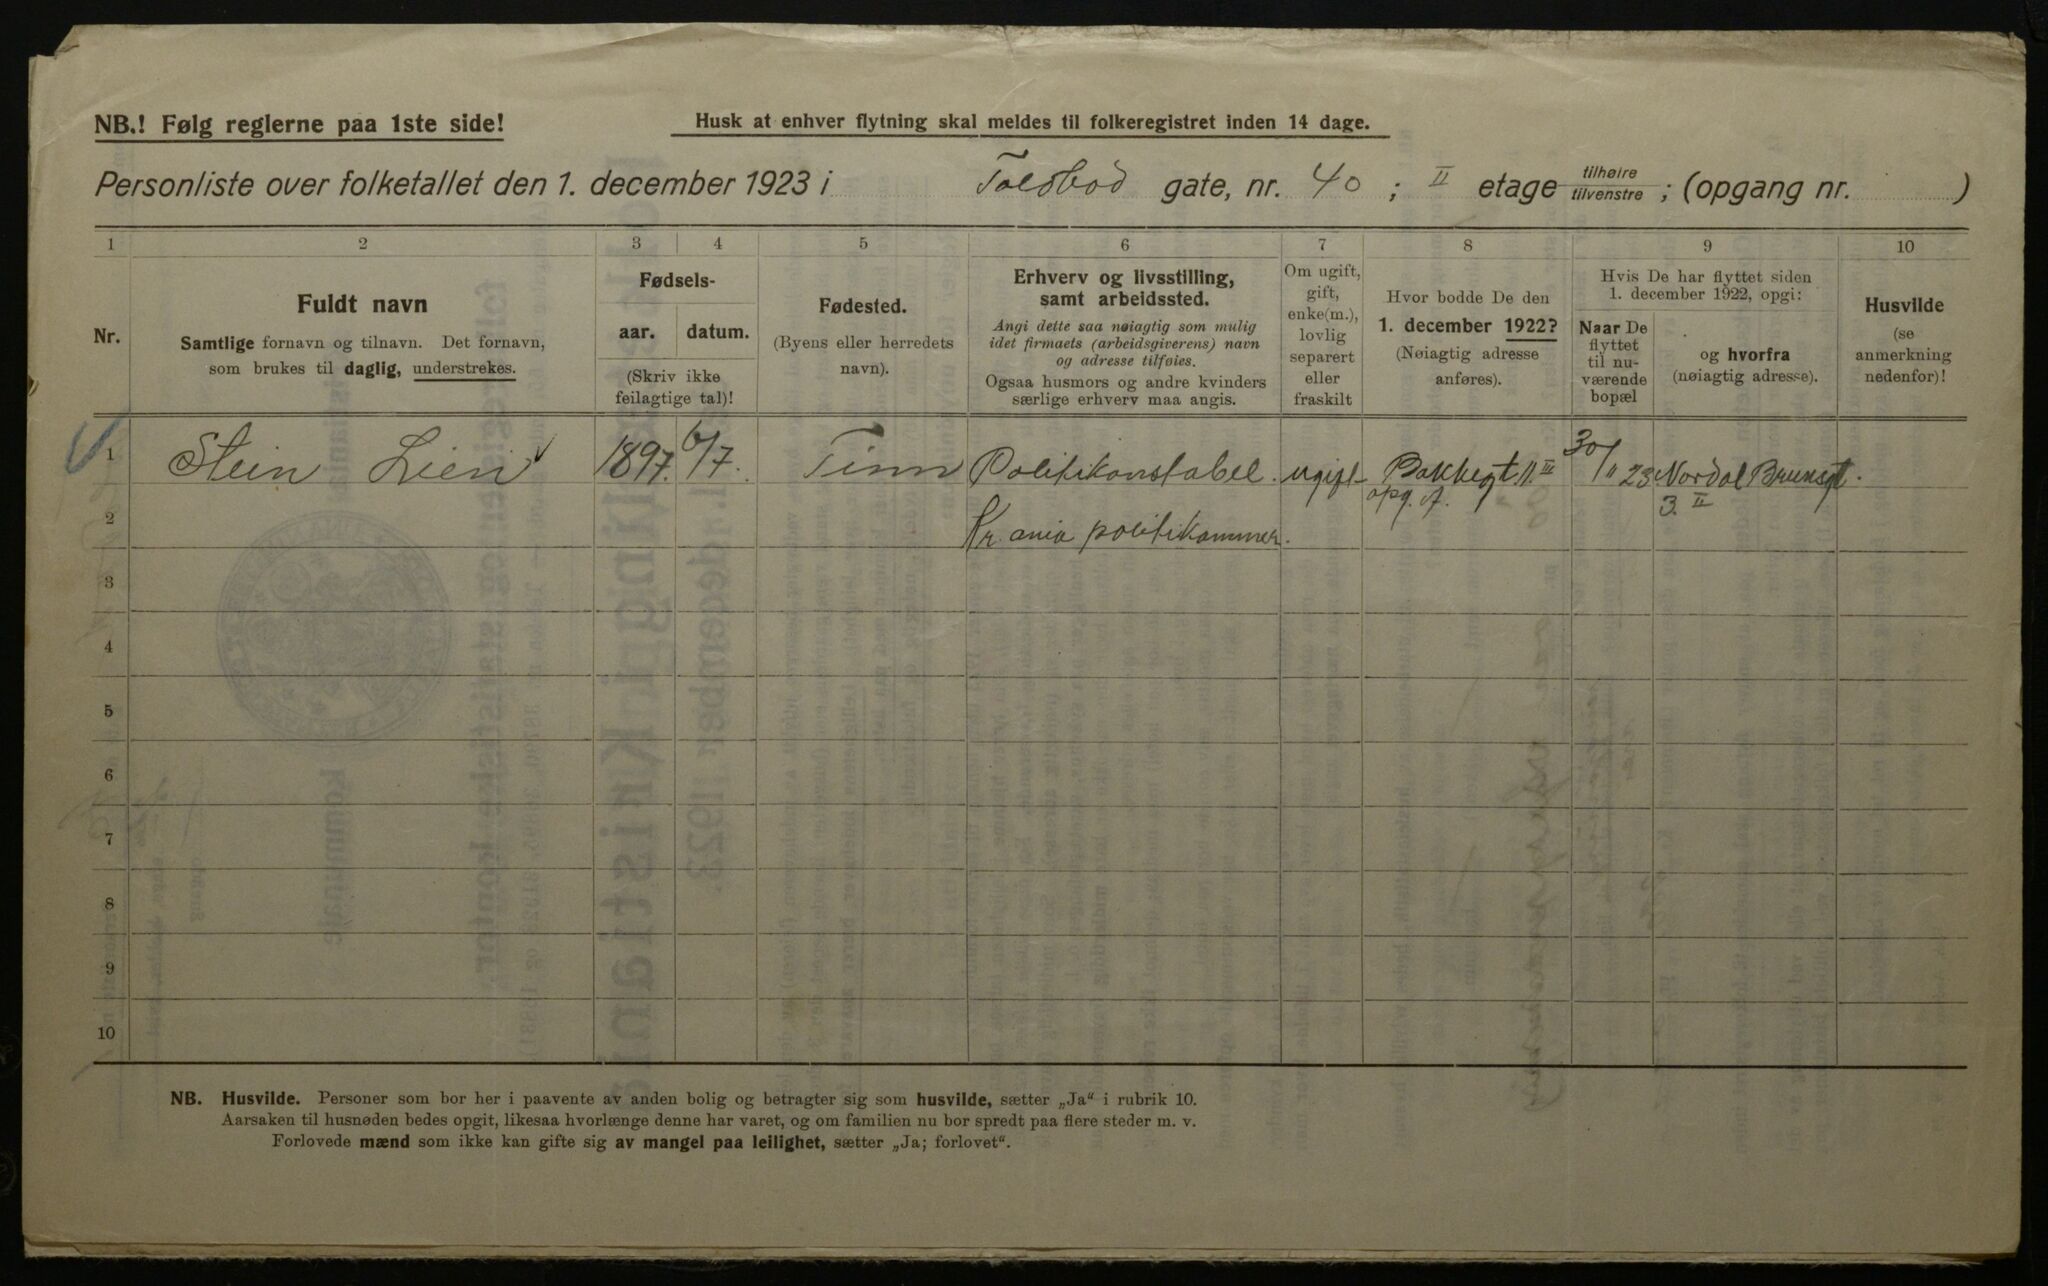 NB.! Følg reglerne paa 1ste side!
Husk at enhver flytning skal meldes til folkeregistret inden 14 dage.
Personliste over folketallet den 1. december 1923 i Toldbod gate, nr. 40 ; II etage tilhøire tilvenstre ; (opgang nr. )
1 2 3 4 5 6 7 8 9 10
Nr.
Fuldt navn
Samtlige fornavn og tilnavn. Det fornavn,
som brukes til daglig, understrekes.
Fødsels-
aar. datum.
(Skriv ikke
feilagtige tal)!
Fødested.
(Byens eller herredets
navn).
Erhverv og livsstilling,
samt arbeidssted.
Angi dette saa nøiagtig som mulig
idet firmaets (arbeidsgiverens) navn
og adresse tilføies.
Ogsaa husmors og andre kvinders
særlige erhverv maa angis.
Om ugift,
gift,
enke(m.),
lovlig
separert
eller
fraskilt
Hvor bodde De den
1. december 1922?
(Nøiagtig adresse
anføres).
Hvis De har flyttet siden
1. december 1922, opgi:
Naar De
flyttet
til nu-
værende
bopæl
og hvorfra
(nøiagtig adresse).
Husvilde
(se
anmerkning
nedenfor)!
1 Stein Lien 1897. 6/7. Tinn Politikonstabel. ugift Bakkegt. 11. III 30/11 23 Nordal Brunsgt.
opg. A. 3. II
2 Kr.ania politikammer.
3
4
5
6
7
8
9
10
NB. Husvilde. Personer som bor her i paavente av anden bolig og betragter sig som husvilde, sætter „Ja“ i rubrik 10.
Aarsaken til husnøden bedes opgit, likesaa hvorlænge denne har varet, og om familien nu bor spredt paa flere steder m. v.
Forlovede mænd som ikke kan gifte sig av mangel paa leilighet, sætter „Ja; forlovet“.